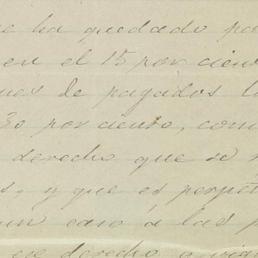 e ha quedado pa
en el 15 por cien
ues de pagados l
30 por ciento, com
derecho que se
s, y que es perpet
un caso á las p
derecho